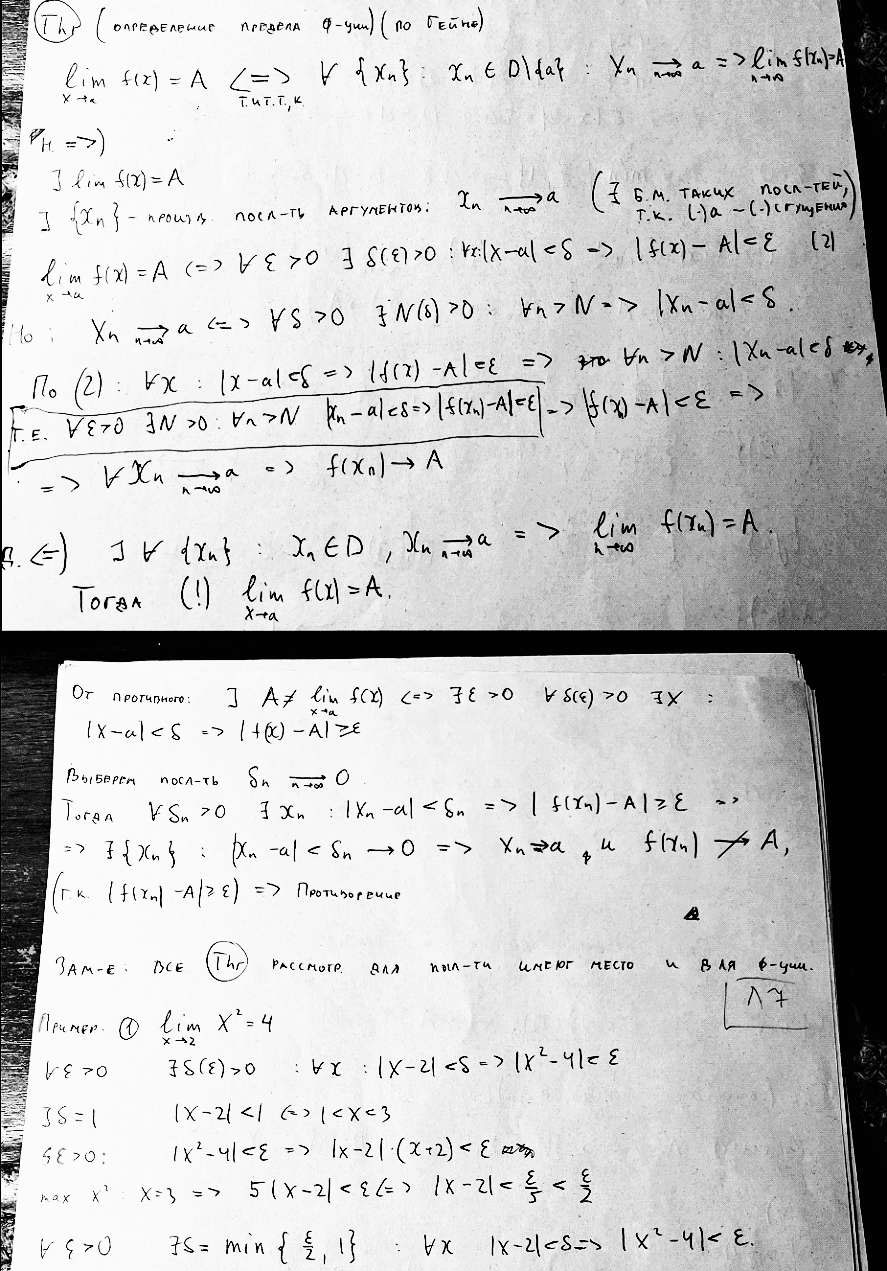 Thr (определение предела ф-уии) (по Гейне)
lim f(x) = A <=> ∀ {xn} : xn ∈ D\{a} : xn → a => lim f(xn) = A
x→a т. и т.т., к. n→∞ n→∞
Н. =>)
∃ lim f(x) = A
∃ {xn} – произв. посл-ть аргументов: xn → a (∃ б.м. таких посл-тей,
n→∞ т.к. (·)a – (·) сгущения)
lim f(x) = A <=> ∀ ε > 0 ∃ δ(ε) > 0 : ∀x: |x-a| < δ => |f(x) - A| < ε (2)
x→a
Но : xn → a <=> ∀ δ > 0 ∃ N(δ) > 0 : ∀n > N => |xn - a| < δ.
n→∞
По (2) : ∀x : |x-a| < δ => |f(x) - A| < ε => ∀n > N : |xn - a| < δ
Т.е. ∀ε>0 ∃N>0 : ∀n>N |xn - a| < δ => |f(xn) - A| < ε => |f(xn) - A| < ε =>
=> ∀ xn → a => f(xn) → A
n→∞
Д. <=) ∃ ∀ {xn} : xn ∈ D, xn → a => lim f(xn) = A.
n→∞ n→∞
Тогда (!) lim f(x) = A.
x→a
От противного: ∃ A ≠ lim f(x) <=> ∃ ε > 0 ∀ δ(ε) > 0 ∃x :
x→a
|x-a| < δ => |f(x) - A| ≥ ε
Выберем посл-ть δn → 0
n→∞
Тогда ∀ δn > 0 ∃ xn : |xn - a| < δn => |f(xn) - A| ≥ ε =>
=> ∃ {xn} : |xn - a| < δn → 0 => xn → a, и f(xn) ↛ A,
(т.к. |f(xn) - A| ≥ ε) => Противоречие
Зам-е: все Thr рассмотр. для посл-ти имеют место и для ф-уии.
Л7
Пример. ① lim x² = 4
x→2
∀ ε > 0 ∃ δ(ε) > 0 : ∀x : |x-2| < δ => |x²-4| < ε
∃ δ = 1 |x-2| < 1 <=> 1 < x < 3
ε > 0 : |x²-4| < ε => |x-2|·(x+2) < ε
max x² : x=3 => 5|x-2| < ε <=> |x-2| < ε/5 < ε/2
∀ ε > 0 ∃ δ = min { ε/2, 1 } : ∀x |x-2| < δ => |x²-4| < ε.